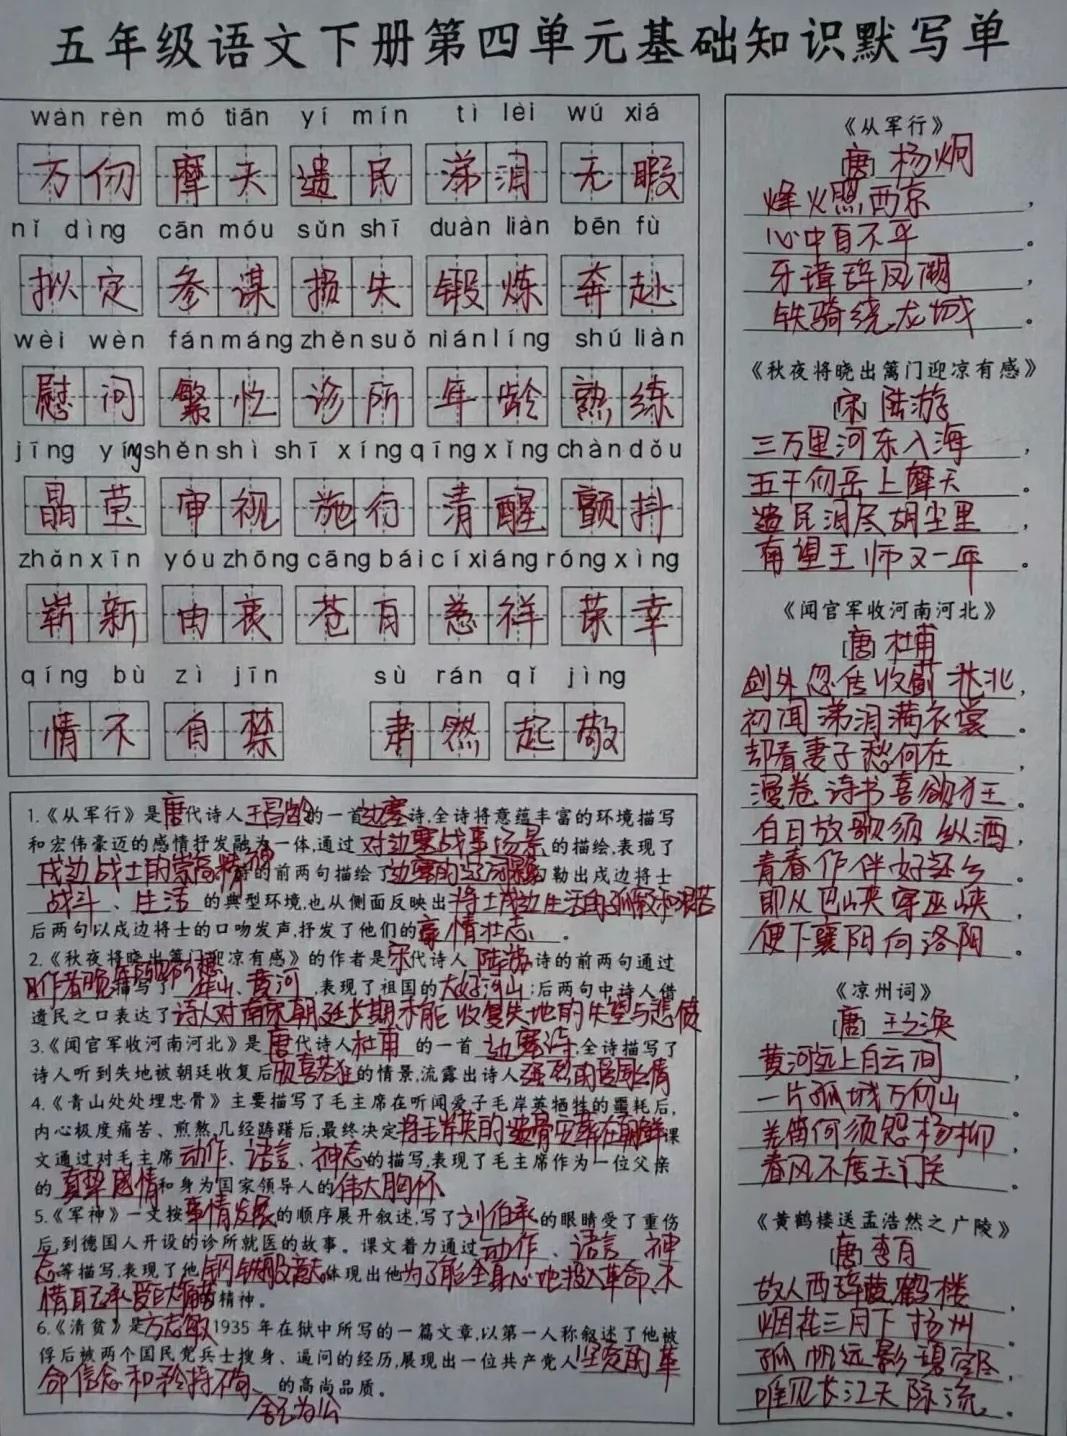 五年级语文下册第四单元基础知识默写单
wàn rèn mó tiān yí mín tì lèi wú xiá
万仞 摩天 遗民 涕泪 无暇
nǐ dìng cān móu sǔn shī duàn liàn bēn fù
拟定 参谋 损失 锻炼 奔赴
wèi wèn fán máng zhěn suǒ nián líng shú liàn
慰问 繁忙 诊所 年龄 熟练
jīng yíng shěn shì shī xíng qīng xǐng chàn dǒu
晶莹 审视 施行 清醒 颤抖
zhǎn xīn yóu zhōng cāng bái cí xiáng róng xìng
崭新 由衷 苍白 慈祥 荣幸
qíng bù zì jīn sù rán qǐ jìng
情不自禁 肃然起敬
1.《从军行》是唐代诗人王昌龄的一首边塞诗,全诗将意蕴丰富的环境描写
和宏伟豪迈的感情抒发融为一体,通过对边塞战事场景的描绘,表现了
戍边战士的崇高精神 的前两句描绘了边塞的 勾勒出戍边将士
战斗、生活的典型环境,也从侧面反映出将士戍边生活的孤寂和艰苦
后两句以戍边将士的口吻发声,抒发了他们的豪情壮志。
2.《秋夜将晓出篱门迎凉有感》的作者是宋代诗人陆游诗的前两句通过
描写了 山、黄河,表现了祖国的大好河山;后两句中诗人借
遗民之口表达了诗人对南宋朝廷长期不能收复失地的失望与悲愤
3.《闻官军收河南河北》是唐代诗人杜甫的一首 边塞诗,全诗描写了
诗人听到失地被朝廷收复后欣喜若狂的情景,流露出诗人强烈的爱国之情
4.《青山处处埋忠骨》主要描写了毛主席在听闻爱子毛岸英牺牲的噩耗后,
内心极度痛苦、煎熬,几经踌躇后,最终决定将毛岸英的遗骨安葬在朝鲜课
文通过对毛主席动作、语言、神态的描写,表现了毛主席作为一位父亲
的真挚感情和身为国家领导人的伟大胸怀
5.《军神》一文按事情发展的顺序展开叙述,写了刘伯承的眼睛受了重伤
后,到德国人开设的诊所就医的故事。课文着力通过动作、语言、神
态等描写,表现了他钢铁般意志体现出他为了能全身心地投入革命,不
惜自己承受巨大痛苦精神。
6.《清贫》是方志敏1935年在狱中所写的一篇文章,以第一人称叙述了他被
俘后被两个国民党兵士搜身、逼问的经历,展现出一位共产党人坚定的革
命信念和矜持不苟、的高尚品质。
舍己为公
《从军行》
[唐]杨炯
烽火照西京,
心中自不平。
牙璋辞凤阙,
铁骑绕龙城。
《秋夜将晓出篱门迎凉有感》
[宋]陆游
三万里河东入海,
五千仞岳上摩天。
遗民泪尽胡尘里,
南望王师又一年。
《闻官军收河南河北》
[唐]杜甫
剑外忽传收蓟北,
初闻涕泪满衣裳。
却看妻子愁何在,
漫卷诗书喜欲狂。
白日放歌须纵酒,
青春作伴好还乡。
即从巴峡穿巫峡,
便下襄阳向洛阳。
《凉州词》
[唐]王之涣
黄河远上白云间,
一片孤城万仞山。
羌笛何须怨杨柳,
春风不度玉门关。
《黄鹤楼送孟浩然之广陵》
[唐]李白
故人西辞黄鹤楼,
烟花三月下扬州。
孤帆远影碧空尽,
唯见长江天际流。